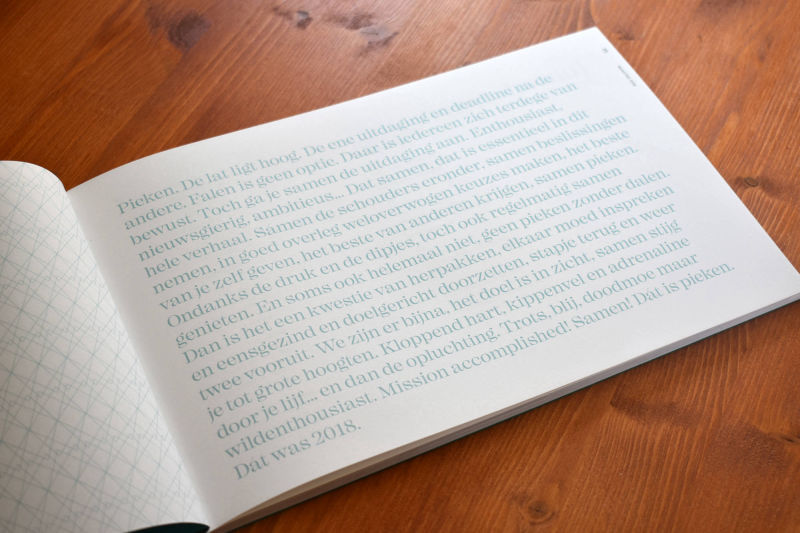 Pieken. De lat ligt hoog. De ene uitdaging en deadline na de
andere. Falen is geen optie. Daar is iedereen zich terdege van
bewust. Toch ga je samen de uitdaging aan. Enthousiast,
nieuwsgierig, ambitieus... Dat samen, dat is essentieel in dit
hele verhaal. Samen de schouders eronder, samen beslissingen
nemen, in goed overleg weloverwogen keuzes maken, het beste
van je zelf geven, het beste van anderen krijgen, samen pieken.
Ondanks de druk en de dipjes, toch ook regelmatig samen
genieten. En soms ook helemaal niet, geen pieken zonder dalen.
Dan is het een kwestie van herpakken, elkaar moed inspreken
en eensgezind en doelgericht doorzetten, stapje terug en weer
twee vooruit. We zijn er bijna, het doel is in zicht, samen stijg
je tot grote hoogten. Kloppend hart, kippenvel en adrenaline
door je lijf... en dan de opluchting. Trots, blij, doodmoe maar
wildenthousiast. Mission accomplished! Samen! Dát is pieken.
Dát was 2018.